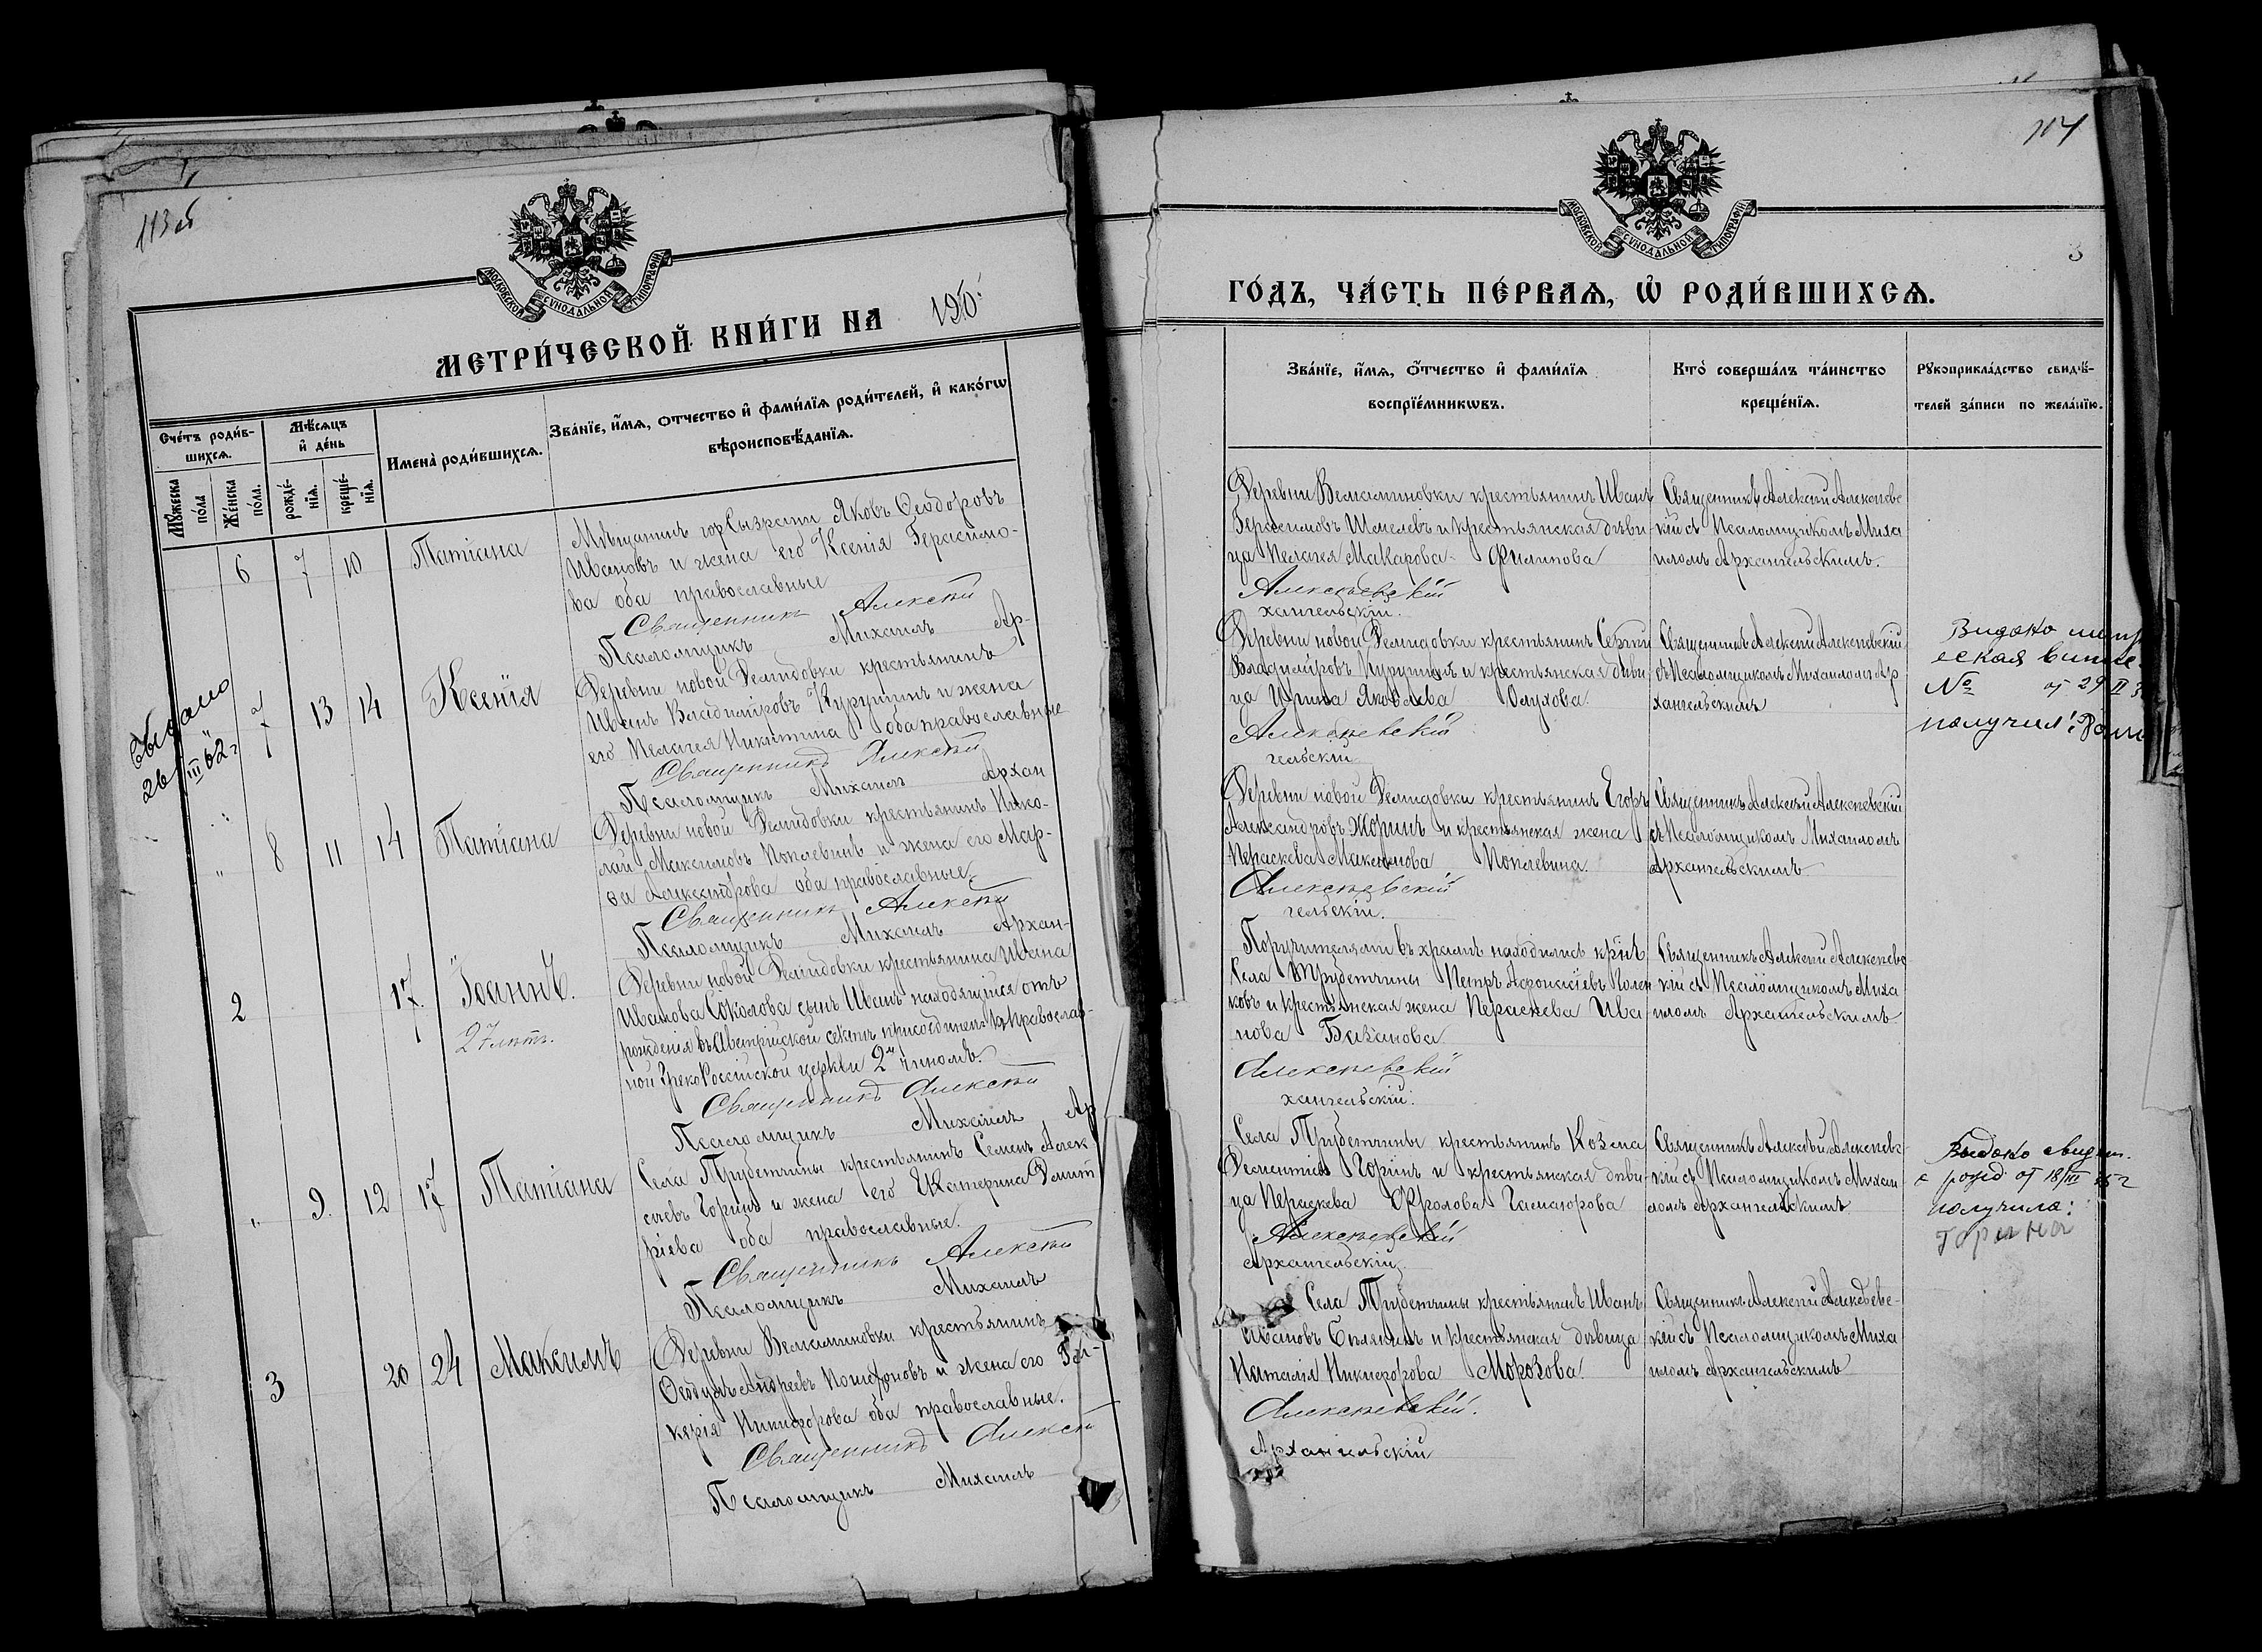 113об
МОСКОВСКОЙ СѴНОДАЛЬНОЙ ТИПОГРАФІИ
МЕТРИ́ЧЕСКОЙ КНИ́ГИ НА
Сче́тъ роди́в-
шихсѧ.
Мꙋ́жеска
по́ла
Же́нска
по́ла.
Мѣ́сѧцъ
и҆ де́нь
рожде́-
нїѧ.
креще́-
нїѧ.
И҆мена̀ роди́вшихсѧ.
Зва́нїе, и҆́мѧ, ѻ҆́тчество и҆ фами́лїѧ роди́телей, и҆ како́гѡ
вѣроисповѣ́данїѧ.
6
7
10
Татіана
Мѣщанинъ гор Сызрани Яковъ Ѳеодоровъ
Ивановъ и жена его Ксенія Герасимо-
ва оба православные
Священникъ Алексѣй
Псаломщикъ Михаилъ Ар-
Выдано
26/III 62 г
7
13
14
Ксенія
Деревни новой Демидовки крестьянинъ
Иванъ Владиміровъ Курушинъ и жена
его Пелагея Никитина оба православные
Священникъ Алексѣй
Псаломщикъ Михаилъ Архан
8
11
14
Татіана
Деревни новой Демидовки крестьянинъ Нико-
лай Максимовъ и жена его Мар-
ѳа Александрова оба православные.
Священникъ Алексѣй
Псаломщикъ Михаилъ Архан-
2
17.
Іоаннъ.
27 лѣтъ.
Деревни новой Демидовки крестьянина Ивана
Иванова Соколова сынъ Иванъ находящійся отъ
рожденія въ Австрійской сектѣ присоединенъ къ Православ-
ной Греко Россійской церкви 2м чиномъ.
Священникъ Алексѣй
Псаломщикъ Михаилъ Ар
9.
12
17
Татіана
Села Трубетчины крестьянинъ Семенъ Алек
сѣевъ Горинъ и жена его Екатерина Димит
ріева оба православные.
Священникъ Алексѣй
Псаломщикъ Михаилъ
3
20
24
Максимъ
Деревни Вельяминовки крестьянинъ
Андреевъ и жена его Гли-
керія Никифорова оба православные.
Священникъ Алексѣй
Псаломщикъ Михаилъ
МОСКОВСКОЙ СѴНОДАЛЬНОЙ ТИПОГРАФІИ
ГО́ДЪ, ЧА́СТЬ ПЕ́РВАѦ, Ѡ҆ РОДИ́ВШИХСѦ.
Зва́нїе, и҆́мѧ, ѻ҆́тчество и҆ фами́лїѧ
воспрїе́мникѡвъ.
Кто̀ соверша́лъ та́инство
креще́нїѧ.
Рꙋкоприкла́дство свидѣ́-
телей за́писи по жела́нїю.
Деревни Вельяминовки крестьянинъ Иванъ
Герасимовъ Шмелевъ и крестьянская дѣви
ца Пелагея Макарова Филинова
Алексѣевскій
хангельскій.
Священникъ Алексѣй Алексѣевс
кій съ Псаломщикомъ Миха
иломъ Архангельскимъ.
Деревни новой Демидовки крестьянинъ Сергѣй
Владиміровъ Курушинъ и крестьянская дѣви
ца Ирина Яковлева
Алексѣевскій
гельскій
Священникъ Алексѣй Алексѣевскій
съ Псаломщикомъ Михаиломъ Ар
хангельскимъ
№ от 29 II
получил:
Деревни новой Демидовки крестьянинъ Егоръ
Александровъ Жоринъ и крестьянская жена
Параскева Максимова
Алексѣевскій
гельскій.
Священникъ Алексѣй Алексѣевскій
съ Псаломщикомъ Михаиломъ
Архангельскимъ
Поручителями въ храмѣ находились
Села Трубетчины Петръ
ковъ и крестьянская жена Параскева Ива
нова Базанова
Алексѣевскій
хангельскій.
Священникъ Алексѣй Алексѣевс
кій съ Псаломщикомъ Миха
иломъ Архангельскимъ
Села Трубетчины крестьянинъ Козма
Дементіевъ Горинъ и крестьянская дѣви-
ца Параскева Фролова
Алексѣевскій
Архангельскій
Священникъ Алексѣй Алексѣевс
кій съ Псаломщикомъ Михаи
ломъ Архангельскимъ
Выдано
о рожд от 18/III
получила:
Горина
Села Трубетчины крестьянинъ Иванъ
Ивановъ и крестьянская дѣвица
Наталія Никифорова Морозова.
Алексѣевскій.
Архангельскій
Священникъ Алексѣй Алексѣевс-
кій съ Псаломщикомъ Миха
иломъ Архангельскимъ